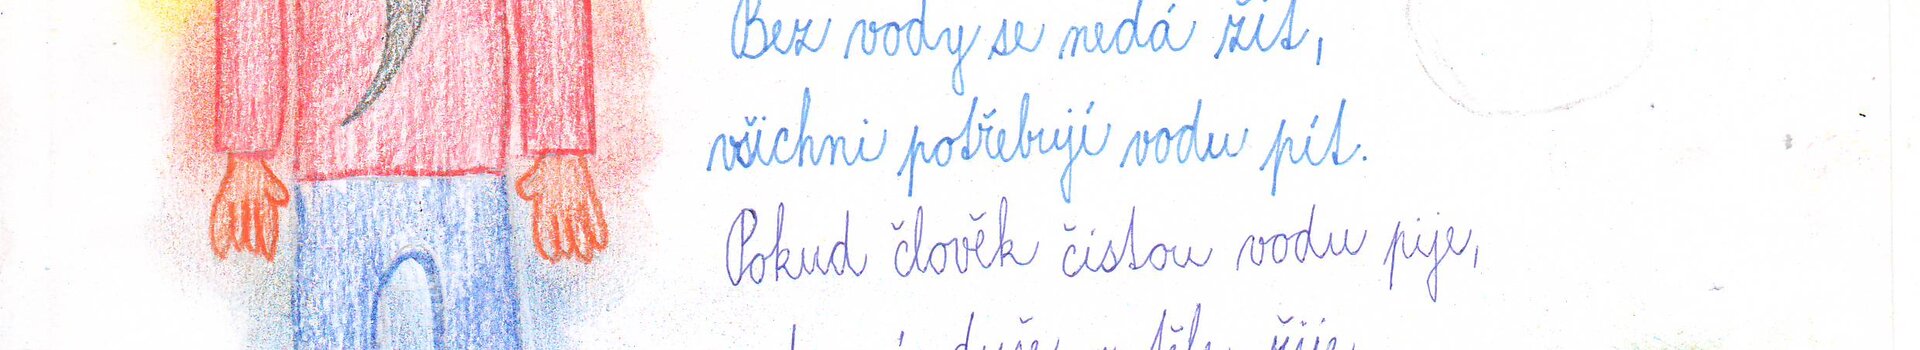 Bez vody se nedá žít,
všichni potřebují vodu pít.
Pokud člověk čistou vodu pije,
duše v těle žije